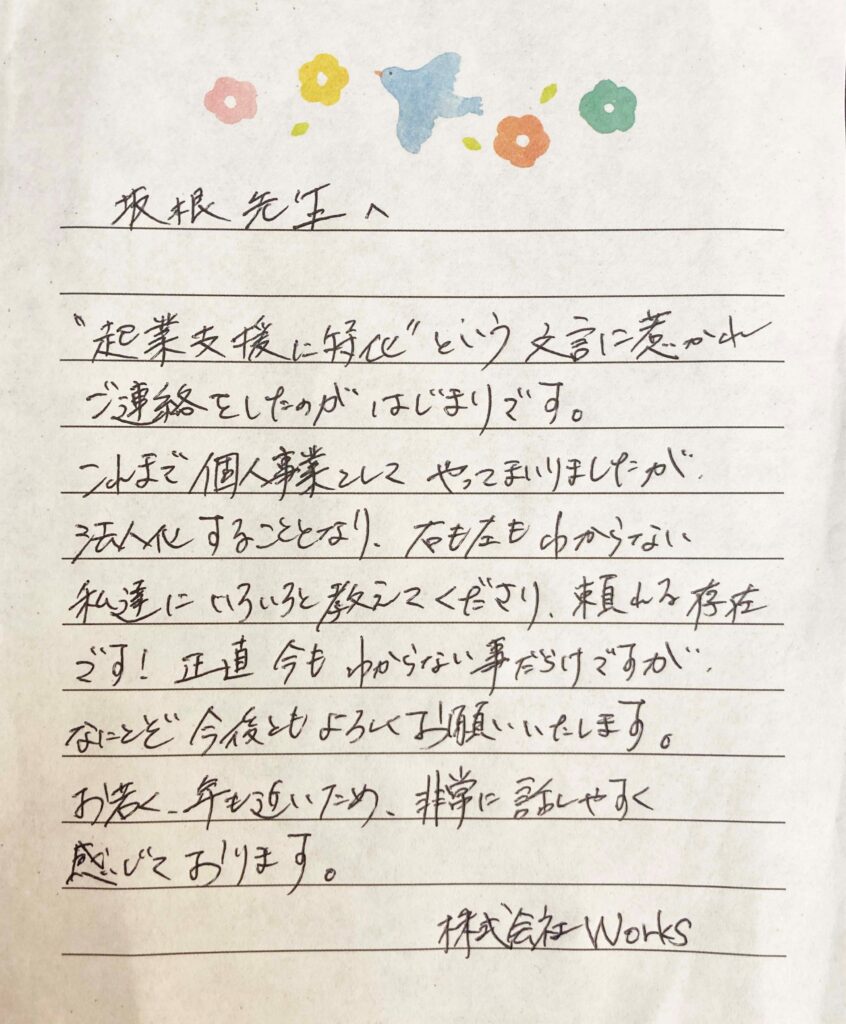 坂根先生へ
"起業支援に特化"という文言に惹かれ
ご連絡をしたのがはじまりです。
これまで個人事業としてやってまいりましたが、
法人化することとなり、右も左もわからない
私達にいろいろと教えてくださり、頼れる存在
です！正直今もわからない事だらけですが、
なにとぞ今後ともよろしくお願いいたします。
お若く、年も近いため、非常に話しやすく
感じております。
株式会社Works